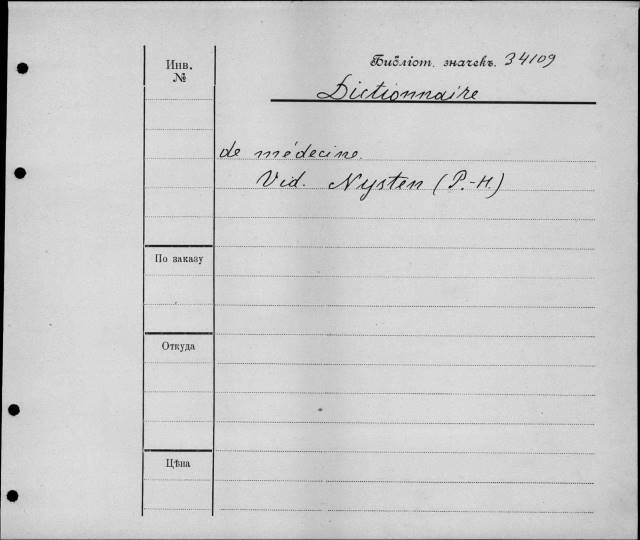 Инв.
№
Библіот. значекъ. 34109
Dictionnaire
de médecine.
Vid. Nysten (P.-H.)
По заказу
Откуда
Цѣна